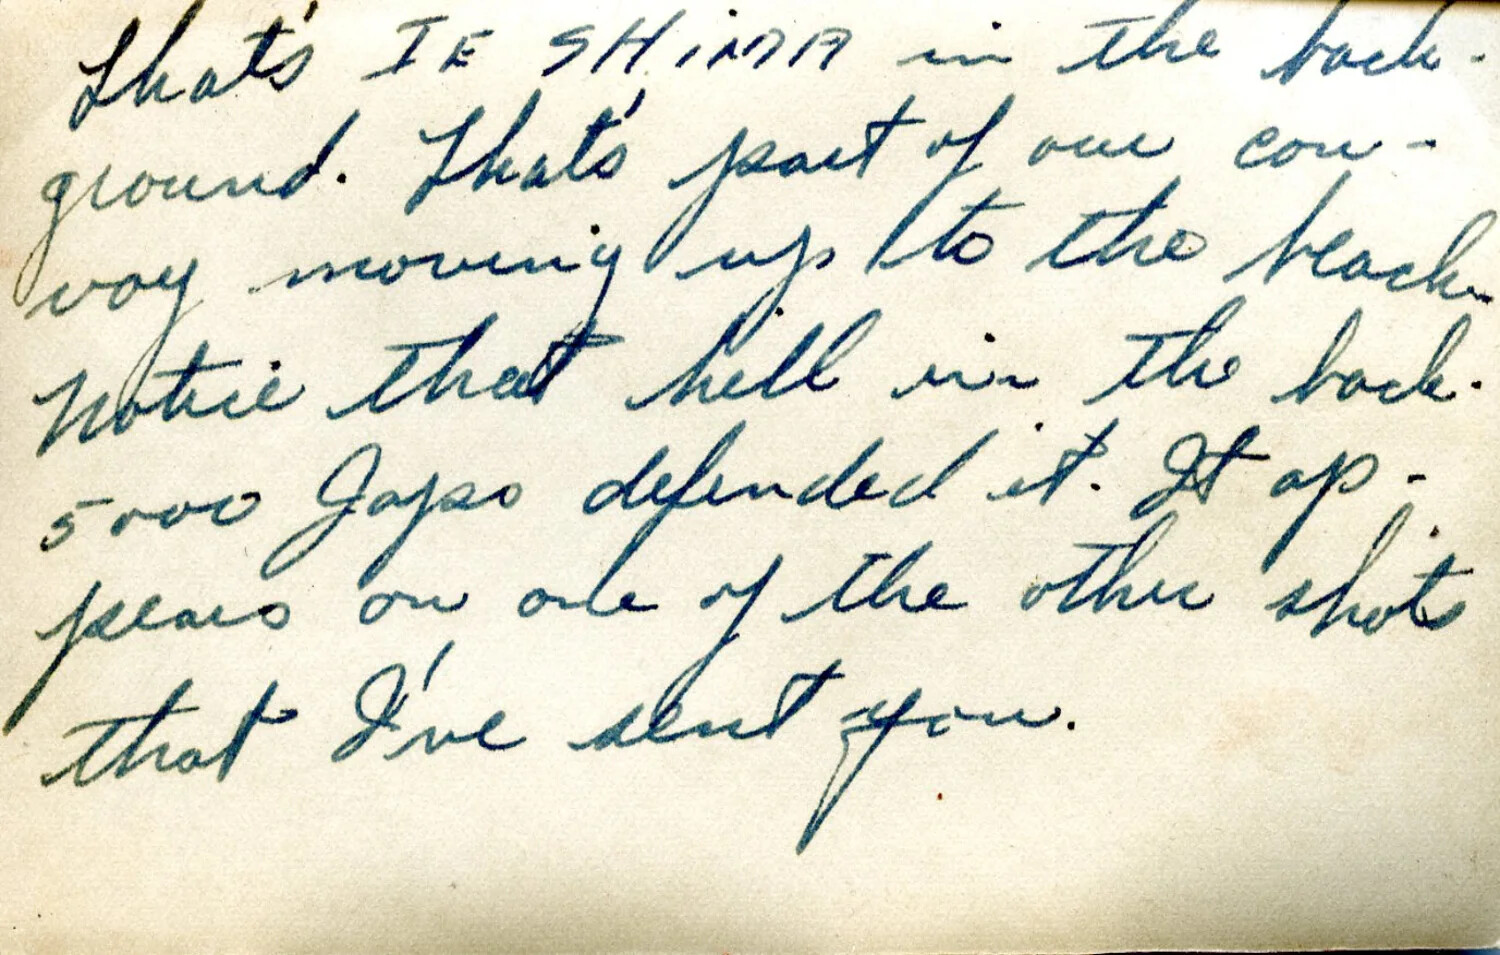 That's IE SHIMA in the back-
ground. That's part of our con-
voy moving up to the beach.
Notice that hill in the back.
5000 Japs defended it. It ap-
pears on one of the other shots
that I've sent you.